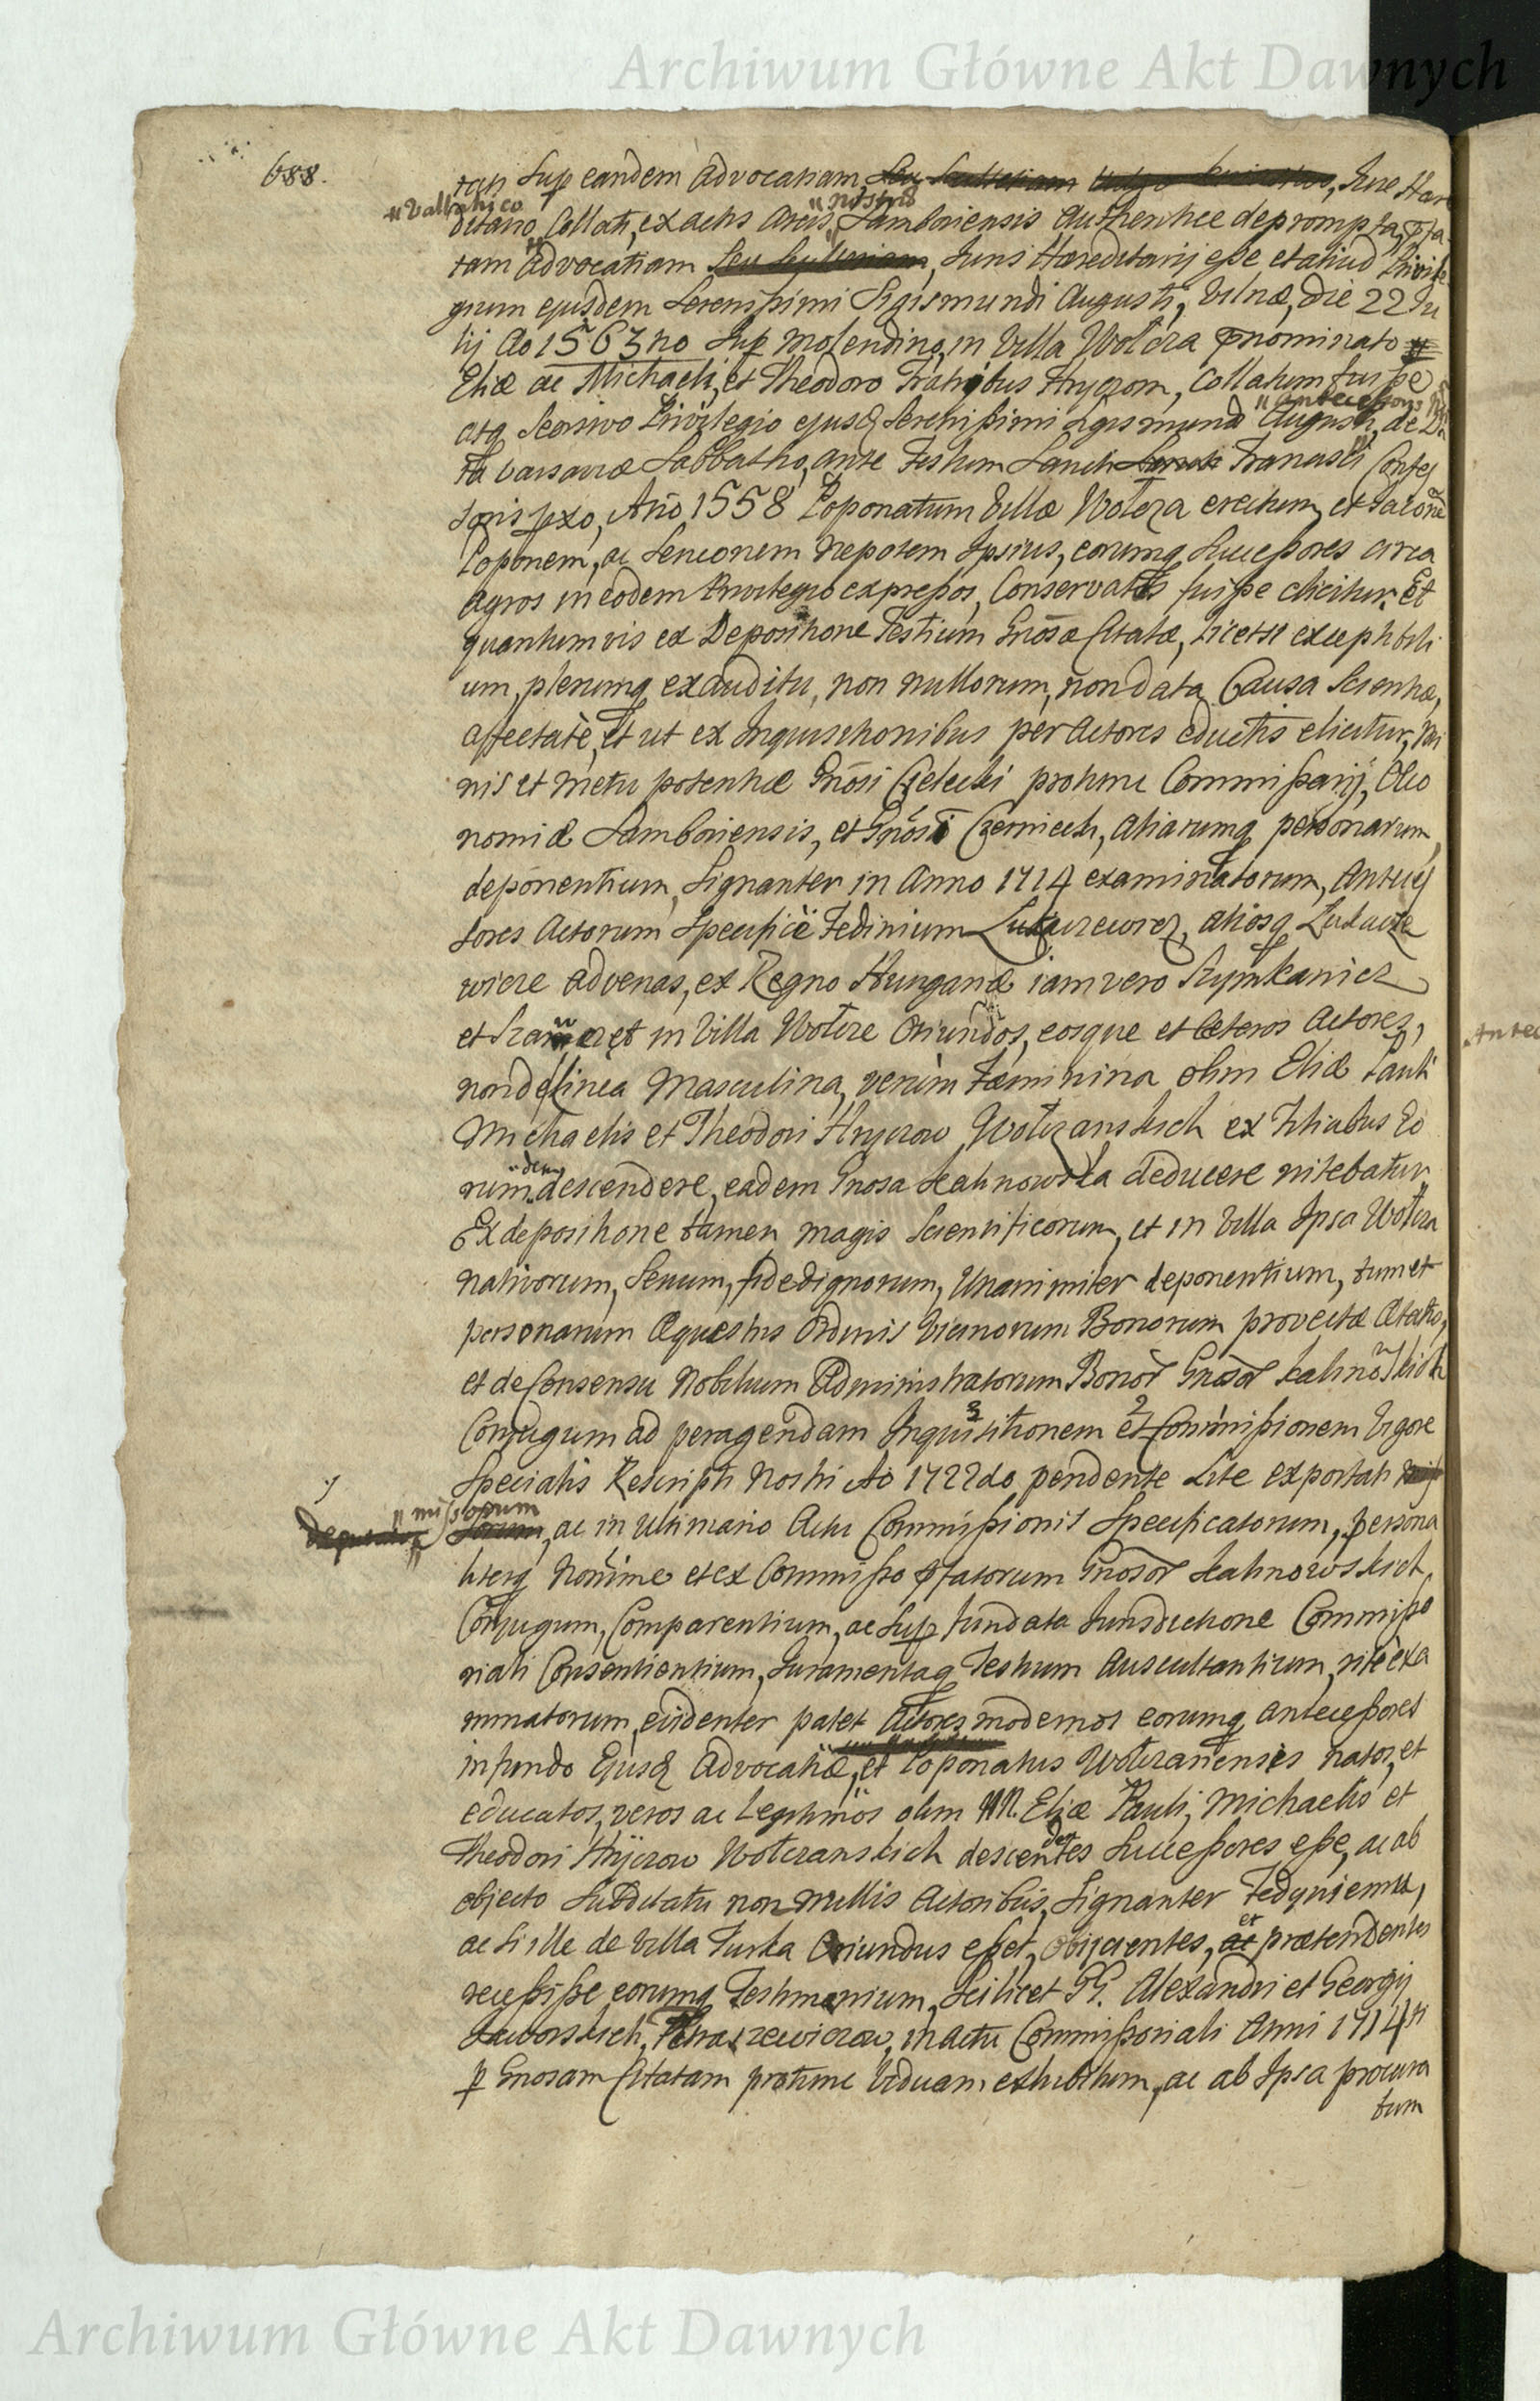 Archiwum Główne Akt Dawnych
688.
rati Sup eandem Advocatiam, Seu Sculteriam, Jure Hære
"Vallachico "nostris
ditario Collati, ex actis Arcis Samboriensis Authentice deprompta, præfa
tam Advocatiam Seu Sculteriam, Juris Hæreditarij esse et aliud Privile
gium ejusdem Serenissimi Sigismundi Augusti, Vilnæ, die 22 Ju
lij Ao 1563no Sup Molendino, in Villa Wołcza prnominato
Eliæ ac Michaeli, et Theodoro Fratribus Hryczom, Collatum fuisse
"antecessoris
atq Seorsivo Privilegio ejusd Serenissimi Sigismundi Augusti, de Da
ta Varsaviæ Sabbatho, ante Festum Sancti Francisci Confes
soris sexo, Ano 1558 Poponatum Villæ Wołcza erectum, et
Poponem, ac Senconem Nepotem Ipsius, eorumq Successores circa
Agros in eodem Privilegio expressos, Conservatos fuisse elicitur. Et
quantumvis ex Depositione Testium Gnosæ Citatæ, licet si exceptibili
um, plerumq ex auditu, non nullorum, non data Causa Scientiæ,
affectatè, Et ut ex Inquisitionibus per Actores eductis elicitur, Mi
nis et Metu potentiæ Gnosi protunc Commissarij, Oeco
nomiæ Samboriensis, et Gnosi Czerniecki, Aliarumq personarum,
deponentium, Signanter in Anno 1714 examinatorum, Anteces
sores Actorum Specificè Fedinium aliosq
wicze advenas, ex Regno Hungariæ iam vero
et in Villa Wołcze Oriundos, eosque et Cæteros Actores,
non de linea Masculina, verùm Fæminina olim Eliæ Pauli
Michaelis et Theodori Hryczow Wołczanskich ex Filiabus Eo
"dem
rum descendere, eadem Gnosa Kalinowska deducere nitebatur.
Ex depositione tamen magis Scientificorum, et in Villa Ipsa Wołcza
nativorum, Senum, fide dignorum, Unanimiter deponentium, tum et
personarum Æquestris Ordinis Vicinorum Bonorum provectæ Ætatis,
et de Consensu Nobilium Administratorum Bonor Gnosor Kalinowskich
Conjugum ad peragendam Inquisitionem et Commissionem Vigore
Specialis Rescripti Nostri Ao 1722do pendente Lite exportati
"missorum
ac in Ultimario Actu Commissionis Specificatorum, persona
literq Nomine et ex Commisso præfatorum Gnosor Kalinowskich
Conjugum, Comparentium, ac Sup fundata Jurisdictione Commisso
riali Consentientium, Juramentaq Testium Auscultantium, ritè exa
minatorum, evidenter patet Actores modernos eorumq Antecessores
in fundo Ejusd Advocatiæ, et Poponatus Wołczanensis natos, et
educatos, veros ac Legitimos olim NN. Eliæ Pauli, Michaelis et
Theodori Hryczow Wołczanskich descendentes Successores esse, ac ab
objecto Subditatu non nullis Actoribus, Signanter
ac Si ille de Villa Turka Oriundus esset, Obijcientes, et prætendentes
recessisse eorumq Testimonium, Scilicet GG. Alexandri et Georgij
Jaworskich, in Actu Commissoriali Anni 1714ti
p Gnosam Citatam protunc Viduam exhibitum, ac ab Ipsa procura
tum
Archiwum Główne Akt Dawnych